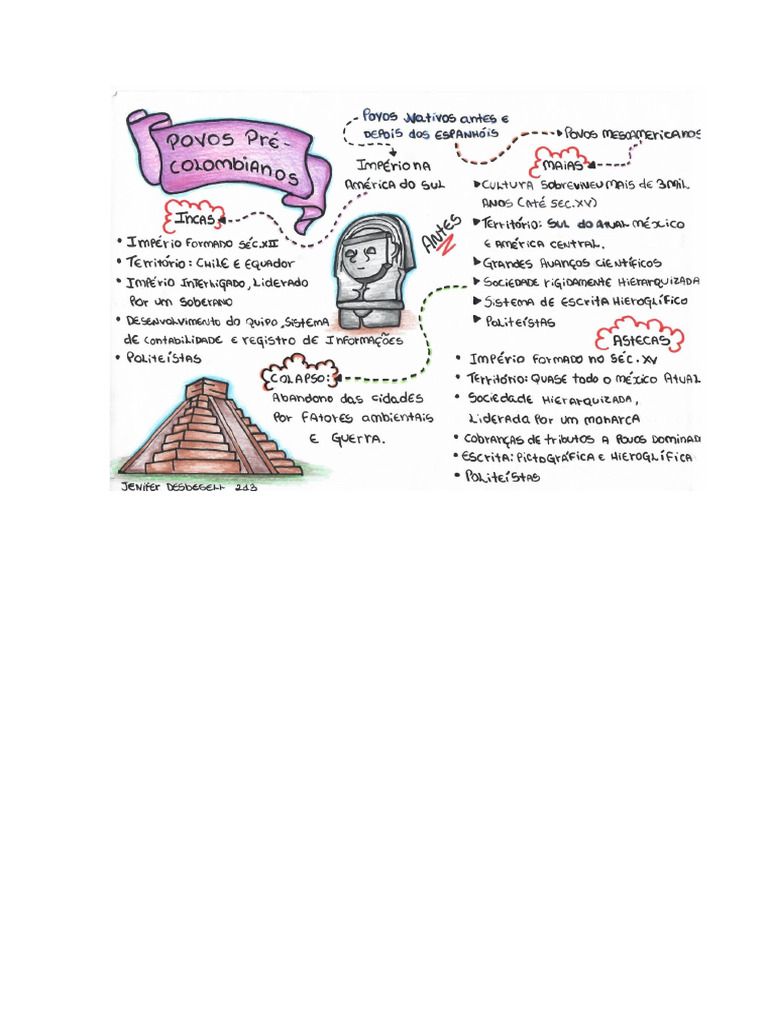 Povos Pré-
Colombianos
Povos Nativos antes e
depois dos espanhóis
Império na
América do Sul
Povos mesoamericanos
Incas
• Império formado séc.XII
• Território: Chile e Equador
• Império interligado, liderado
por um soberano
• Desenvolvimento do quipo, sistema
de contabilidade e registro de informações
• Politeístas
Antes
Maias
Cultura sobreviveu mais de 3 mil
anos (até séc.XV)
Território: Sul do atual México
e América Central.
Grandes avanços científicos
Sociedade rigidamente hierarquizada
Sistema de escrita hieroglífico
Politeístas
Colapso:
Abandono das cidades
por fatores ambientais
e guerra.
Astecas
• Império formado no séc.XV
• Território: quase todo o México atual
• Sociedade hierarquizada,
liderada por um monarca
• Cobranças de tributos a povos dominad
• Escrita: pictográfica e hieroglífica
• Politeístas
Jenifer 213